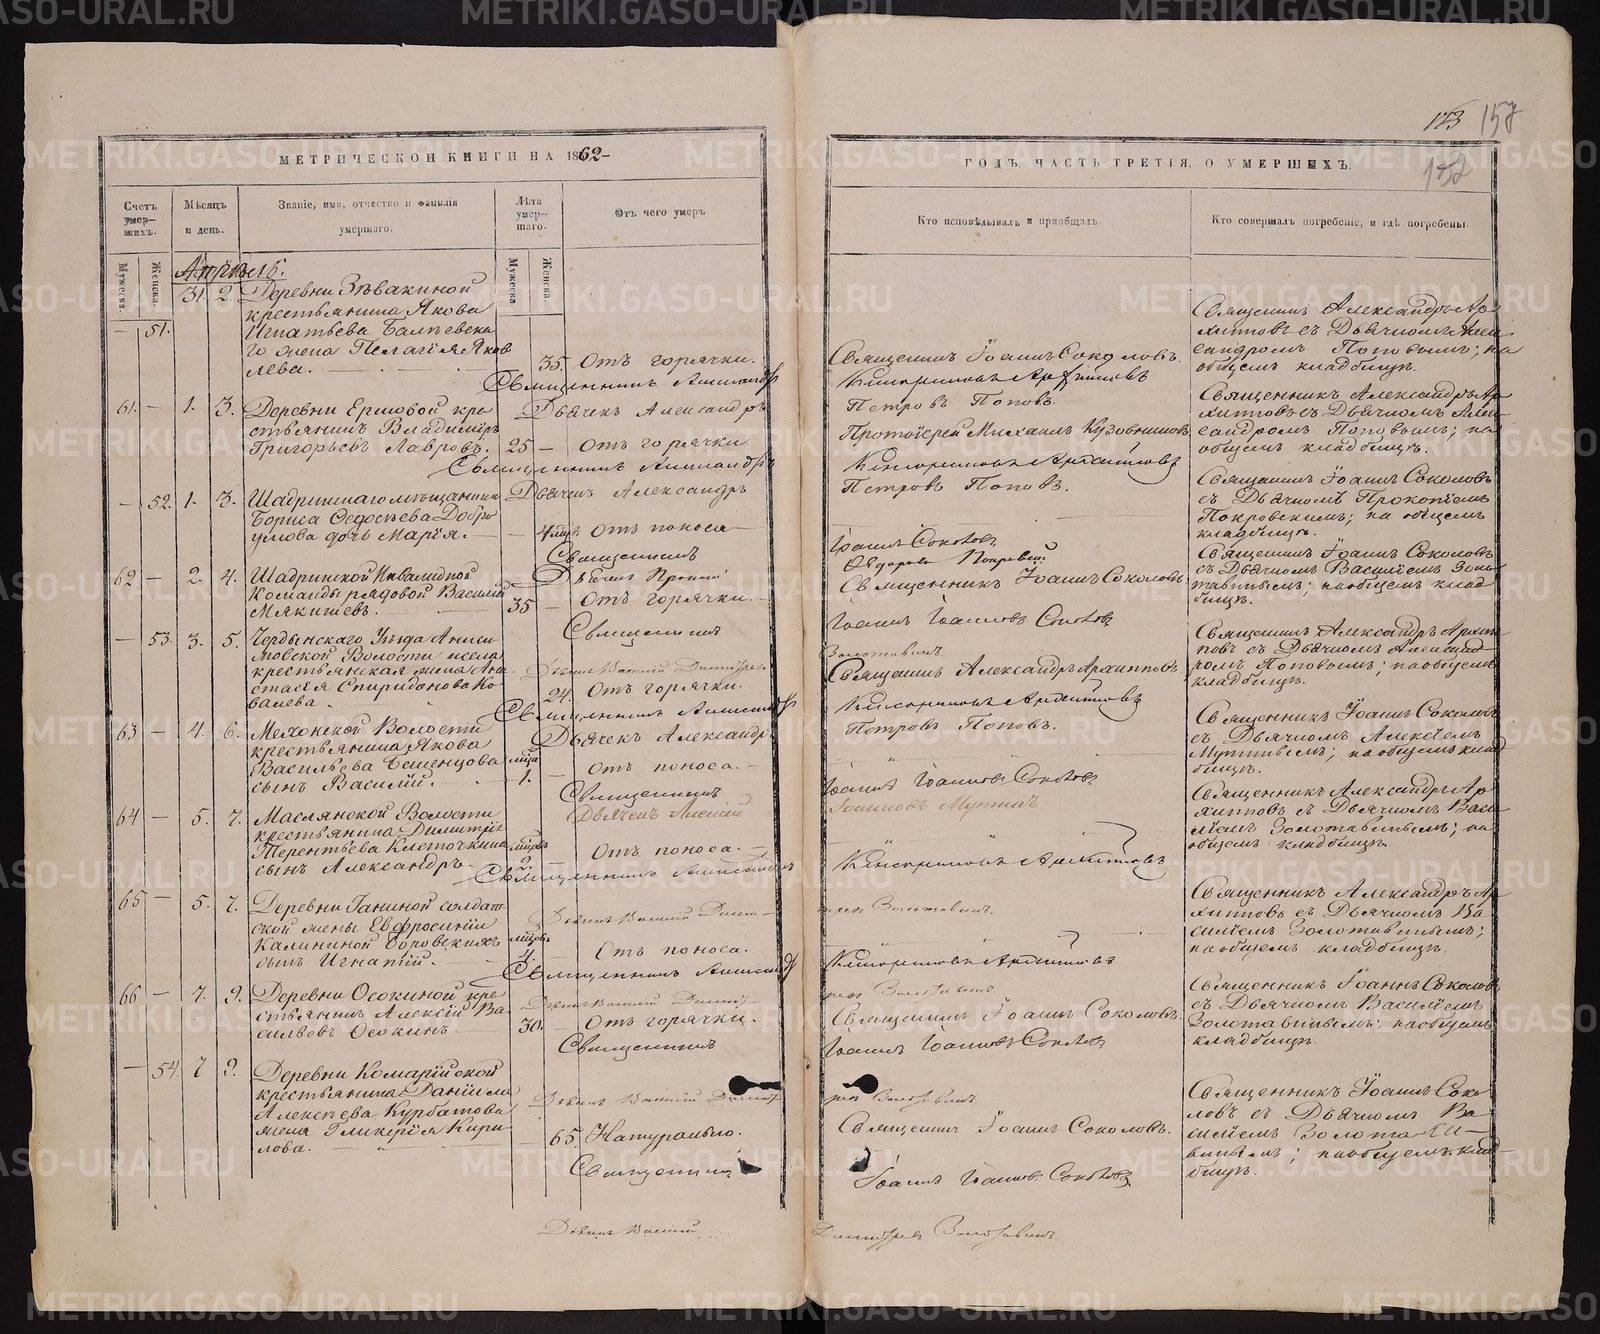 МЕТРИЧЕСКОЙ КНИГИ НА 1862
Счетъ умер-шихъ.
Мѣсяцъ и день.
Званіе, имя, отчество и фамилія умершаго.
Лѣта умер-шаго.
Отъ чего умеръ
Мужеска
Женска.
Мужеска
Женска.
Апрѣль.
31. 2. Деревни Зѣвакиной
крестьянина Якова
51.
Игнатьева
го жена Пелагія Яков
лева.
35. Отъ горячки.
Священникъ Александръ
61. — 1. 3. Деревни Ершовой кре
стьянинъ Владиміръ
Григорьевъ Лавровъ.
Дьячекъ Александръ
25 — Отъ горячки
Священникъ Александръ
— 52. 1. 3. Шадринскаго мѣщанина
Бориса Федосѣева Добро
умова дочь Марія.
Дьячекъ Александръ
Отъ поноса
Священникъ
62 — 2. 4. Шадринской Инвалидной
Команды рядовой Василій
Мякишевъ.
35 — Отъ горячки.
Священникъ
— 53. 3. 5. Чердынскаго Уѣзда Аниси
мовской Волости
крестьянская жена Ана
стасія Спиридонова Ко
валева.
Дьячекъ Василій Димитріев
24. Отъ горячки.
Священникъ Александръ
63 — 4. 6. Мехонской Волости
крестьянина Якова
Васильева
сынъ Василій.
Дьячекъ Александръ
1. — Отъ поноса.
Священникъ
Дьячекъ Алексій
64 — 5. 7. Маслянской Волости
крестьянина Димитрія
Терентьева Клеточкина
сынъ Александръ
2. Отъ поноса.
Священникъ Александръ
65 — 5. 7. Деревни Ганиной солдат
ской жены Евфросиніи
Калининой Боровскихъ
сынъ Игнатій.
Дьячекъ Василій Димит
4. Отъ поноса.
Священникъ Александръ
66 — 7. 9. Деревни Осокиной кре
стьянинъ Алексій Ва
сильевъ Осокинъ
Дьячекъ Василій Димит
30. Отъ горячки.
Священникъ
— 54. 7 9. Деревни Комарійской
крестьянина Даніила
Алексѣева Курбатова
жена Гликерія Кири
лова.
Дьячекъ Василій Димит
65. Натурально.
Священникъ
Дьячекъ Василій
173 157
152
ГОДЪ, ЧАСТЬ ТРЕТІЯ, О УМЕРШИХЪ.
Кто исповѣдывалъ и пріобщалъ.
Кто совершалъ погребеніе, и гдѣ погребены.
Священникъ Іоаннъ Соколовъ.
Архиповъ
Петровъ Поповъ.
Протоіерей Михаилъ Кузовниковъ
Архиповъ
Петровъ Поповъ.
Іоаннъ Соколовъ
Федоровъ Покровскій
Священникъ Іоаннъ Соколовъ
Іоаннъ Іоанновъ Соколовъ
Золотавинъ.
Священникъ Александръ Архиповъ
Архиповъ
Петровъ Поповъ.
Іоаннъ Іоанновъ Соколовъ
Іоанновъ Мутинъ
Архиповъ
Золотавинъ.
Архиповъ
Золотавинъ
Священникъ Іоаннъ Соколовъ.
Іоаннъ Іоанновъ Соколовъ
Золотавинъ.
Священникъ Іоаннъ Соколовъ.
Іоаннъ Іоанновъ Соколовъ
Димитріевъ Золотавинъ
Священникъ Александръ Ар
хиповъ съ Дьячкомъ Алек
сандромъ Поповымъ; на
общемъ кладбищѣ.
Священникъ Александръ Ар
хиповъ съ Дьячкомъ Алек
сандромъ Поповымъ; на
общемъ кладбищѣ.
Священникъ Іоаннъ Соколовъ
съ Дьячкомъ Прокопіемъ
Покровскимъ; на общемъ
кладбищѣ.
Священникъ Іоаннъ Соколовъ
съ Дьячкомъ Василіемъ Золо
тавинымъ; на общемъ клад
бищѣ.
Священникъ Александръ Архи
повъ съ Дьячкомъ Александ
ромъ Поповымъ; на общемъ
кладбищѣ.
Священникъ Іоаннъ Соколовъ
съ Дьячкомъ Алексіемъ
Мутинымъ; на общемъ клад
бищѣ.
Священникъ Александръ Ар
хиповъ съ Дьячкомъ Васи
ліемъ Золотавинымъ; на
общемъ кладбищѣ.
Священникъ Александръ Ар
хиповъ съ Дьячкомъ Ва
силіемъ Золотавинымъ;
на общемъ кладбищѣ.
Священникъ Іоаннъ Соколовъ
съ Дьячкомъ Василіемъ
Золотавинымъ; на общемъ
кладбищѣ.
Священникъ Іоаннъ Соко
ловъ съ Дьячкомъ Ва
силіемъ Золота
винымъ; на общемъ клад
бищѣ.
METRIKI.GASO-URAL.RU